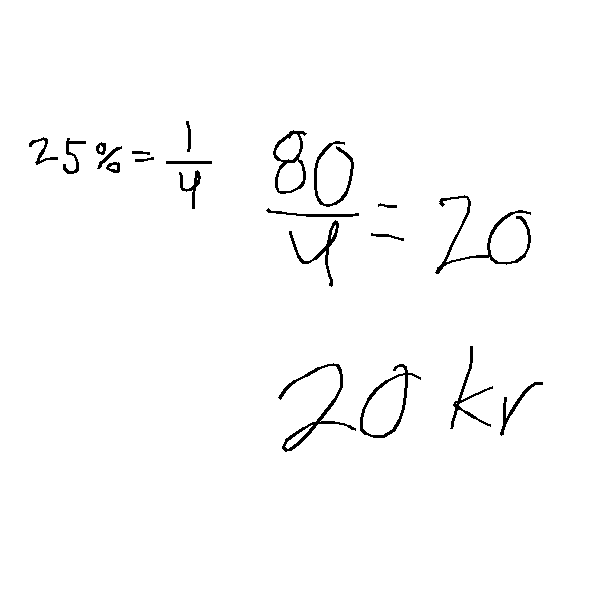 25% = 1/4
80/4 = 20
20 kr